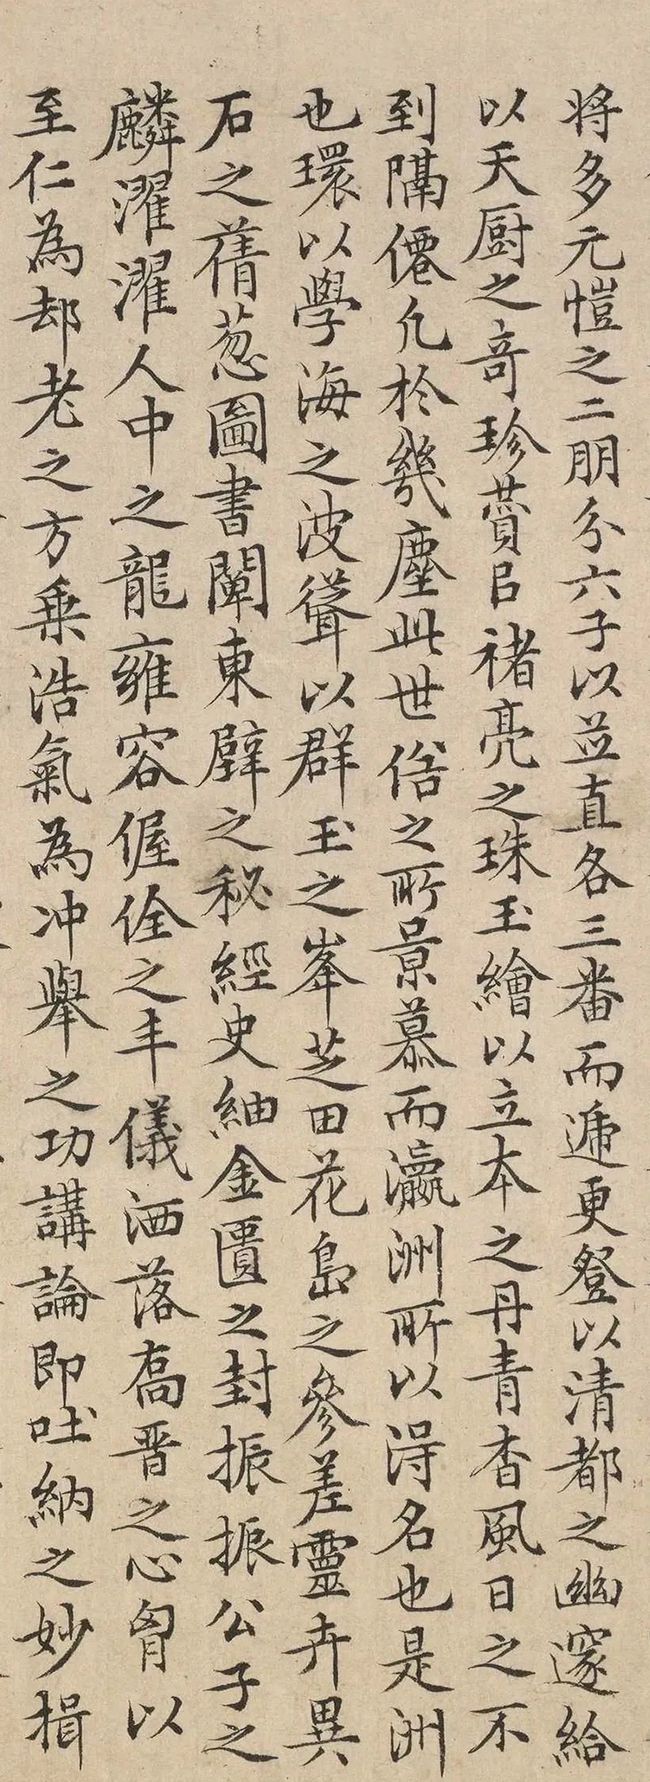 将多元愷之二朋分六子以並直各三番而遞更登以清都之幽邃給
以天厨之奇珍賛㠯褚亮之珠玉繪以立本之丹青杳風日之不
到隔僊凡於幾塵此世俗之所景慕而瀛洲所以淂名也是洲
也環以學海之波聳以群玉之峯芝田花島之參差靈卉異
石之蒨葱圖書闡東壁之秘經史紬金匱之封振振公子之
麟濯濯人中之龍雍容偓佺之丰儀洒落喬晋之心胷以
至仁為却老之方乗浩氣為冲舉之功講論即吐納之妙揖